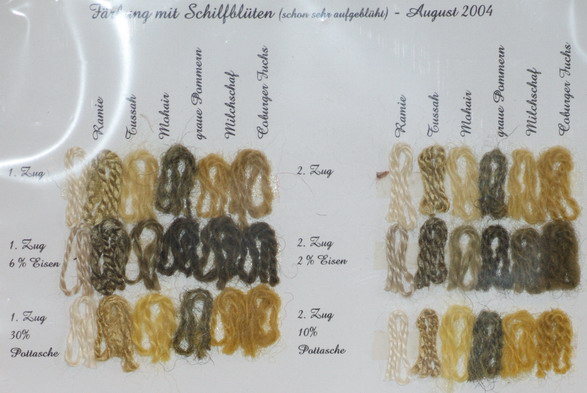 Färbung mit Schilfblüten (schon sehr aufgeblüht) - August 2004
Ramie Tussah Mohair graue Pommern Milchschaf Coburger Fuchs
Ramie Tussah Mohair graue Pommern Milchschaf Coburger Fuchs
1. Zug
2. Zug
1. Zug
6 % Eisen
2. Zug
2 % Eisen
1. Zug
30%
Pottasche
2. Zug
10%
Pottasche